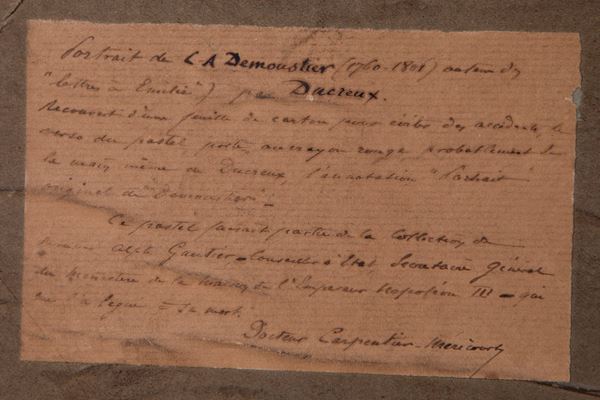 Portrait de C A Demoustier (1760-1801) auteur des
"lettres à Emilie") par Ducreux.
Recouvert d'une feuille de carton pour éviter des accidents, le
verso du pastel porte, au crayon rouge, probablement de
la main même de Ducreux, l'annotation "Portrait
original de Demoustier" -
Ce pastel faisait partie de la Collection de
Gautier - Conseiller d'Etat, Secrétaire Général
du Ministère de la Maison de l'Empereur Napoléon III - qui
me l'a légué à sa mort.
Docteur Carpentier-Méricourt